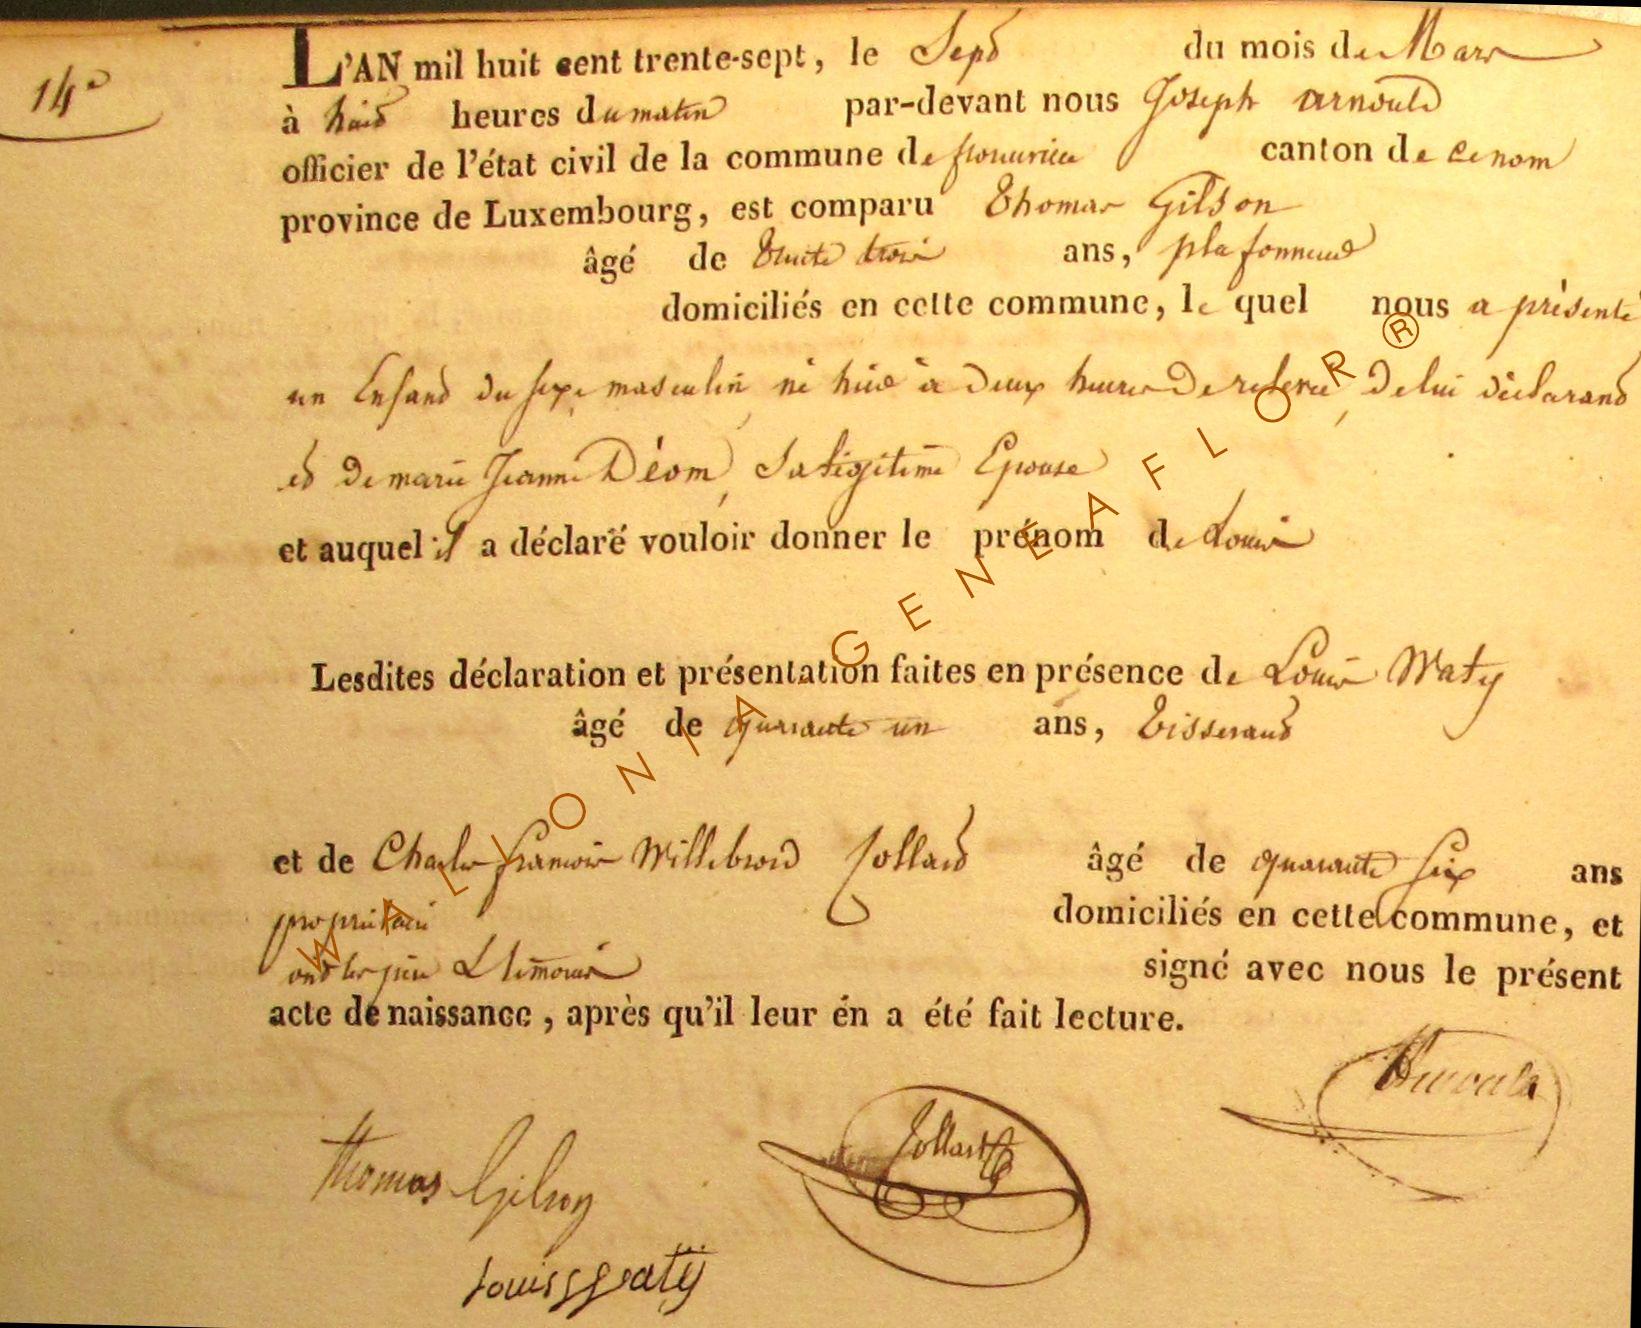 14e
L'AN mil huit cent trente-sept, le Sept du mois de Mars
à huit heures du matin par-devant nous Joseph arnould
officier de l'état civil de la commune de canton de ce nom
province de Luxembourg, est comparu Thomas Gilson
âgé de trente trois ans, plafonneur
domiciliés en cette commune, le quel nous a présenté
un Enfant du sexe masculin né hier à deux heures de relevée, de lui déclarant
et de marie Jeanne Déom, Sa légitime Epouse
et auquel il a déclaré vouloir donner le prénom de Louis
Lesdites déclaration et présentation faites en présence de Louis Waty
âgé de quarante un ans, tisserand
et de Charles françois Willibrord Collard âgé de quarante six ans
propriétaire domiciliés en cette commune, et
ont les père & témoins signé avec nous le présent
acte de naissance, après qu'il leur en a été fait lecture.
Thomas Gilson
Collard
Arnould
Louis Waty
WALLONIA GENEAFLOR ®